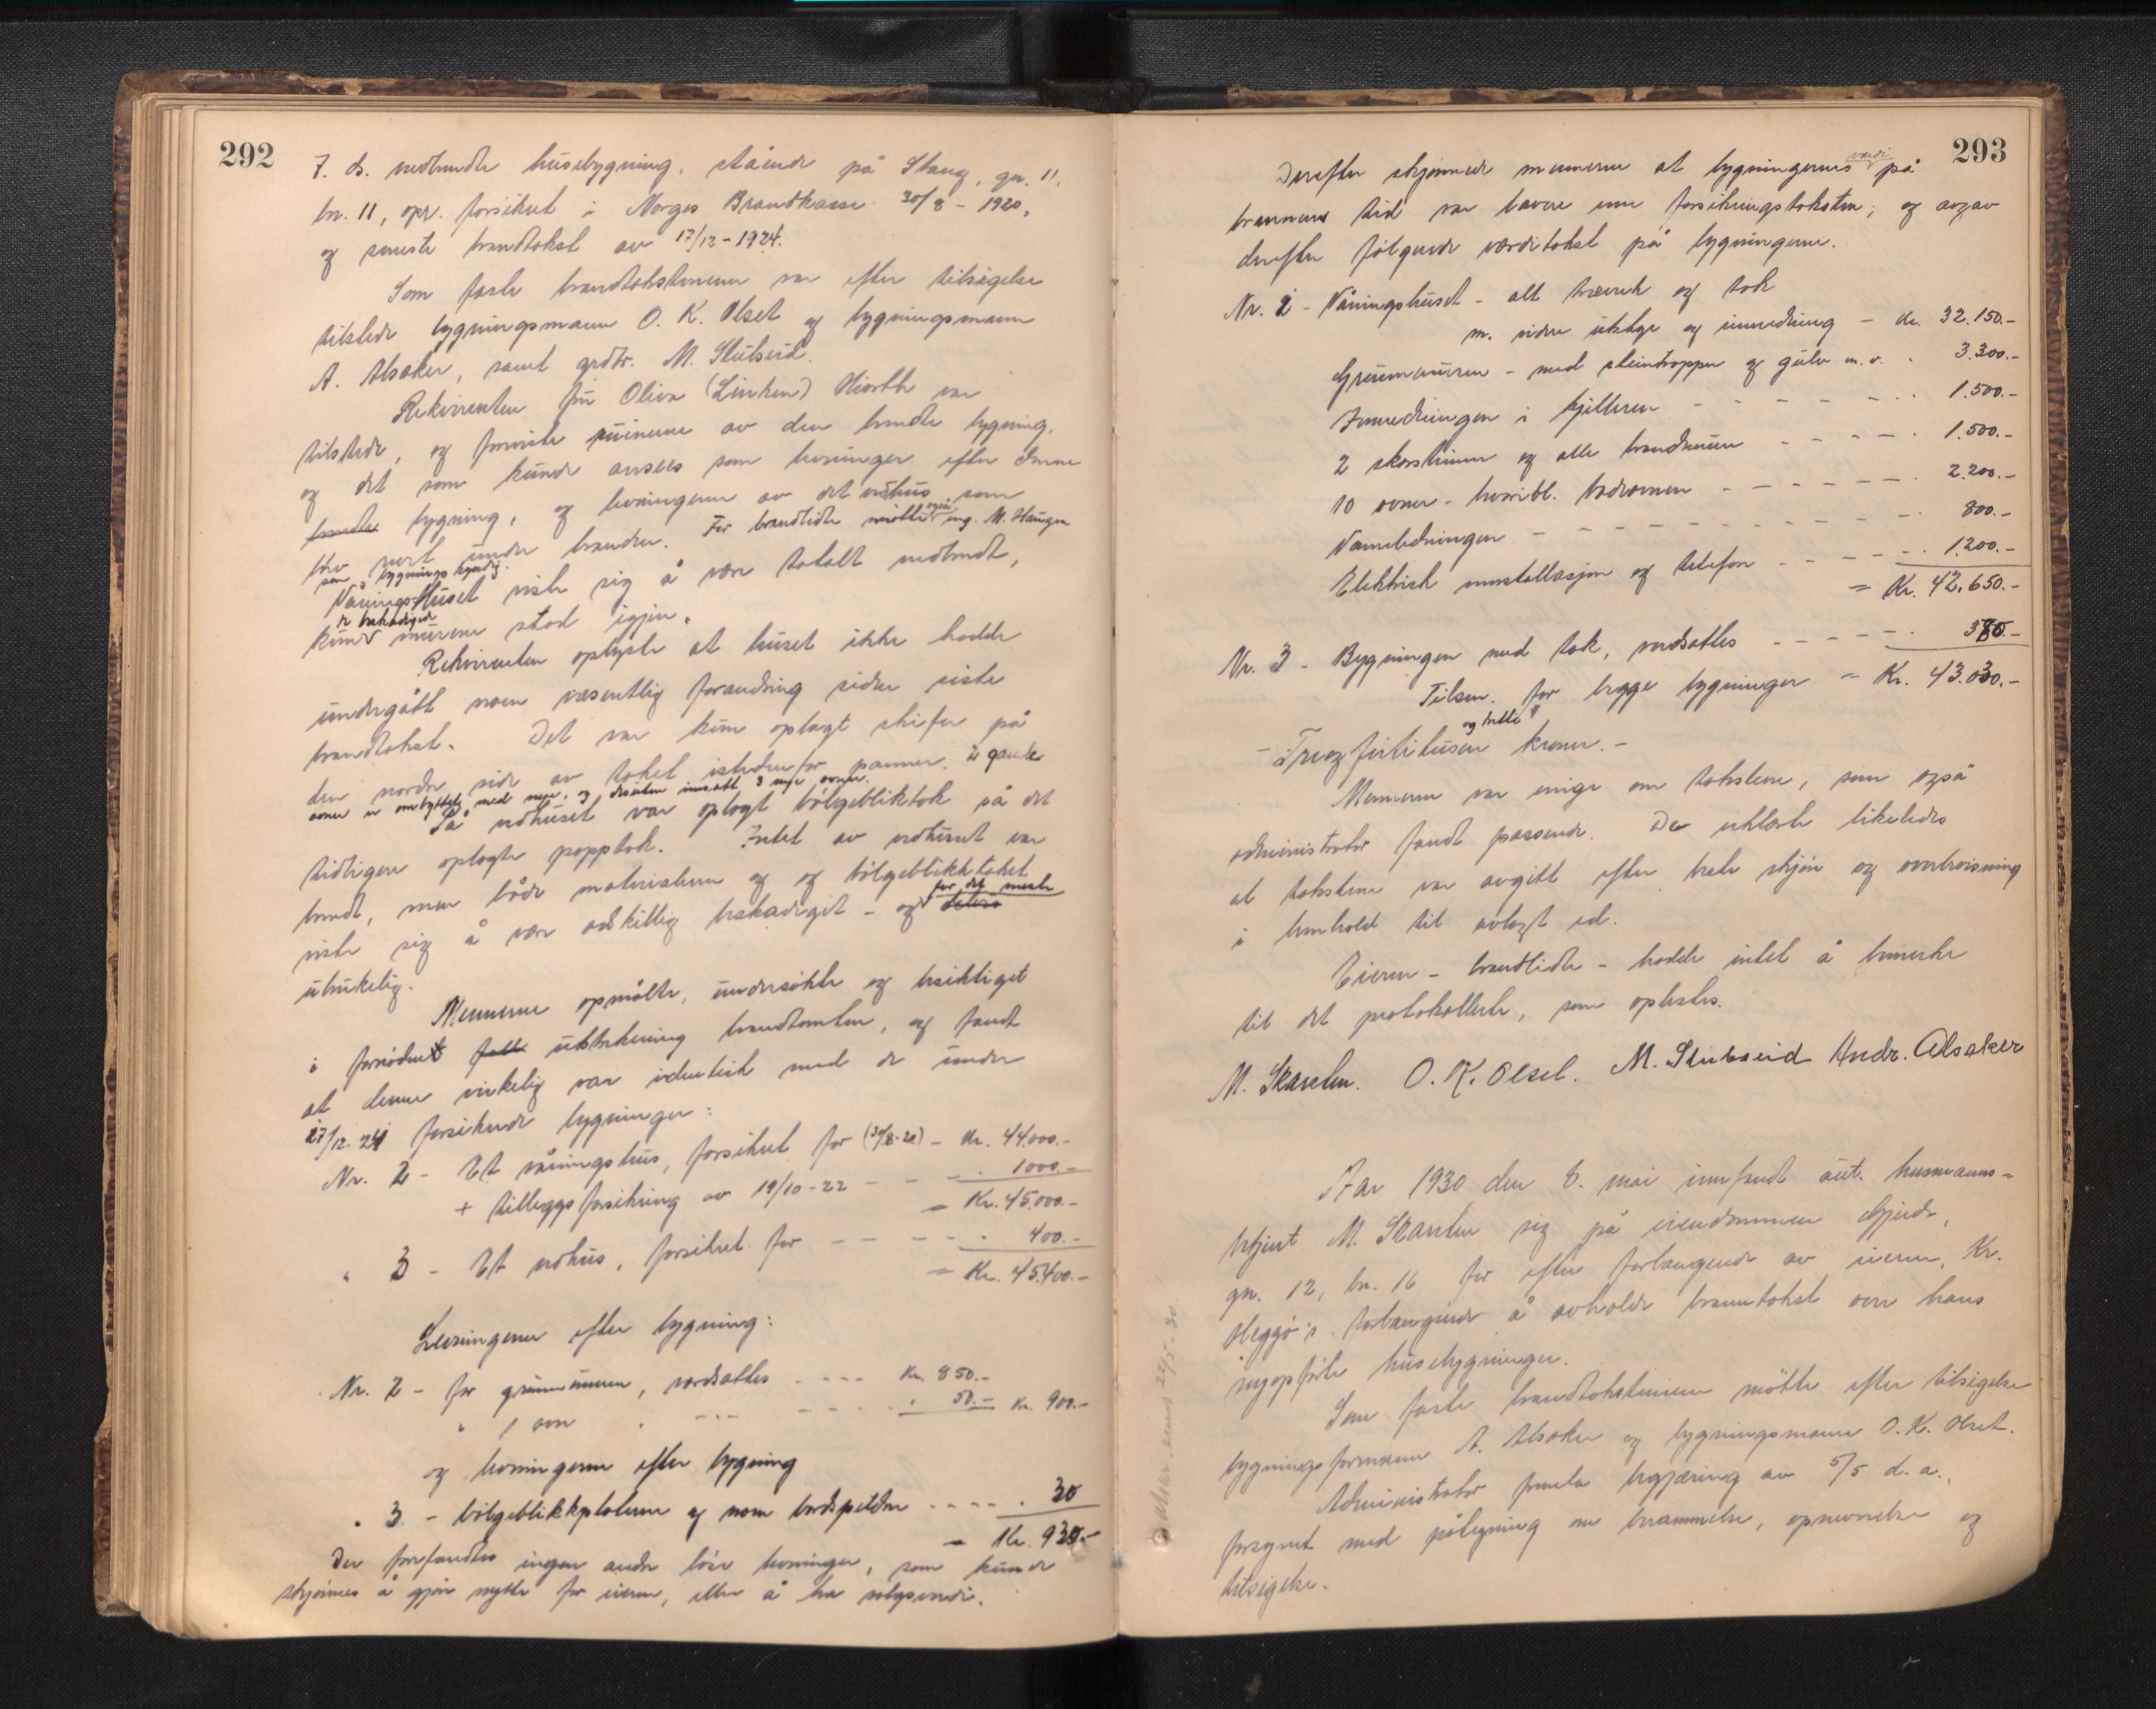 292
7. ds. nedbrendte husebygning, stående på Stang, gn. 11,
bn. 11, opr. forsikret i Norges Brandkasse 30/8 - 1920,
og seneste brandtakst av 17/12 - 1924.
Som faste brandtakstmenn var efter tilsigelse
tilstede bygningsmann O. K. Olset og bygningsmann
A. Alsaker, samt grdbr. M. Stubseid.
Rekvirenten fru Oliva (Linken) Hiorth var
tilstede, og foreviste ruinerne av den brendte bygning,
og det som kunde ansees som levninger efter denne
bygning, og levningerne av det vedhus som
blev revet under branden. For brandlidte møtte også ing. M. Haugen
som bygningskyndig.
Vånings-Huset viste sig å være totalt nedbrendt,
kun de beskadigede murene stod igjen.
Rekvirenten oplyste at huset ikke hadde
undergått noen væsentlig forandring siden siste
brandtakst. Det var kun oplagt skifer på
den nordre side av taket istedenfor panner. 2 gamle
ovner er ombyttet med nye, og desuten innsatt 3 nye ovner.
På vedhuset var oplagt bølgebliktak på det
tidligere oplagte papptak. Intet av vedhuset var
brendt, men både materialerne og og bølgeblikktaket
viste sig å være adskillig beskadiget - og for det meste
ubrukelig.
Mennerne opmålte, undersøkte og besiktiget
i fornøden utstrekning brandtomten, og fandt
at denne virkelig var identisk med de under
17/12-24 forsikrede bygninger:
Nr. 2 - Et våningshus, forsikret for (30/8-20) - Kr. 44.000.-
+ tilleggsforsikring av 19/10-22 - - - 1000.-
= Kr. 45.000.-
" 3 - Et vedhus, forsikret for - - - - - 400.-
= Kr. 45.400.-
Levningerne efter bygning:
Nr. 2 - for grunnmuren, verdsattes .... Kr. 850.-
" 1 ovn " - - - - - - " 50.- Kr. 900.-
og levningerne efter bygning
" 3 - bølgeblikkplaterne og noen bordspilder .... " 30
= Kr. 930.-
Der forefandtes ingen andre løse levninger, som kunde
skjønnes å gjøre nytte for eieren, eller å ha salgsverdi.
293
Derefter skjønnede mennerne at bygningernes verdi på
brannens tid var lavere enn forsikringstaksten, og avgav
derefter følgende verditakst på bygningerne.
Nr. 2 - Våningshuset - alt treverk og tak
m. videre utstyr og innredning - Kr. 32.150.-
Grunnmuren - med steintrapper og gulv m.v. " 3.300.-
Innredningen i kjelleren - - - - - - " 1.500.-
2 skorstener og alle brandmurer - - - - " 1.500.-
10 ovner - hvoribl. badeovnen - - - - - - " 2.200.-
Vannledningen - - - - - - - - - - " 800.-
Elektrisk innstallasjon og telefon - - - - " 1.200.-
= Kr. 42.650.-
Nr. 3 - Bygningen med tak, verdsattes - - - - - " 380.-
Tilsm. for begge bygninger = Kr. 43.030.-
- Treogførtitusen og tretti kroner. -
Mennerne var enige om takstene, som også
administrator fandt passende. De erklærte likeledes
at takstene var avgitt efter beste skjøn og overbevisning
i henhold til avlagt ed.
Eieren - brandlidte - hadde intet å bemerke
til det protokollerte, som oplestes.
M. Skarsten. O. K. Olset. M. Stubseid Andr. Alsaker
År 1930 den 8. mai innfandt aut. husmanns-
betjent M. Skarsten sig på eiendommen Gjerde,
gn. 12, bn. 16 for efter forlangende av eieren, Kr.
Heggø's forlangende å avholde branntakst over hans
nyopførte husebygninger.
Som faste brandtakstmenn møtte efter tilsigelse
bygningsformann A. Alsaker og bygningsmann O. K. Olset.
Administrator fremla begjæring av 5/5 d. a.,
forsynt med påtegning om berammelse, opnevnelse og
tilsigelse.